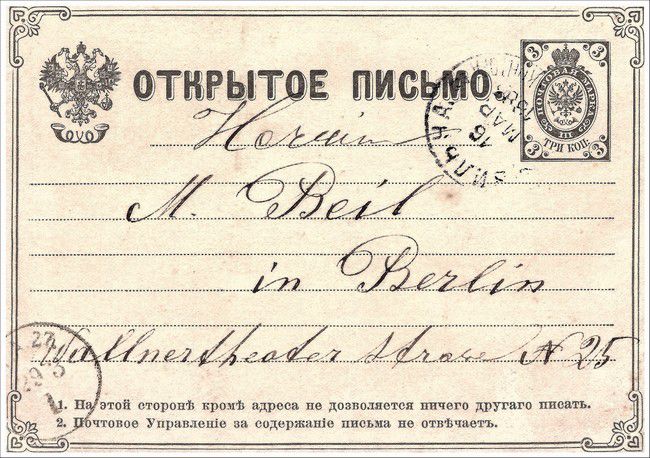 ОТКРЫТОЕ ПИСЬМО.
3 3
ПОЧТОВАЯ МАРКА
III
ТРИ КОП.
3 3
16
МАР
Herrn
M. Beil
in Berlin
Wallnertheater strasse N 25
1. На этой сторонѣ кромѣ адреса не дозволяется ничего другаго писать.
2. Почтовое Управленіе за содержаніе письма не отвѣчаетъ.